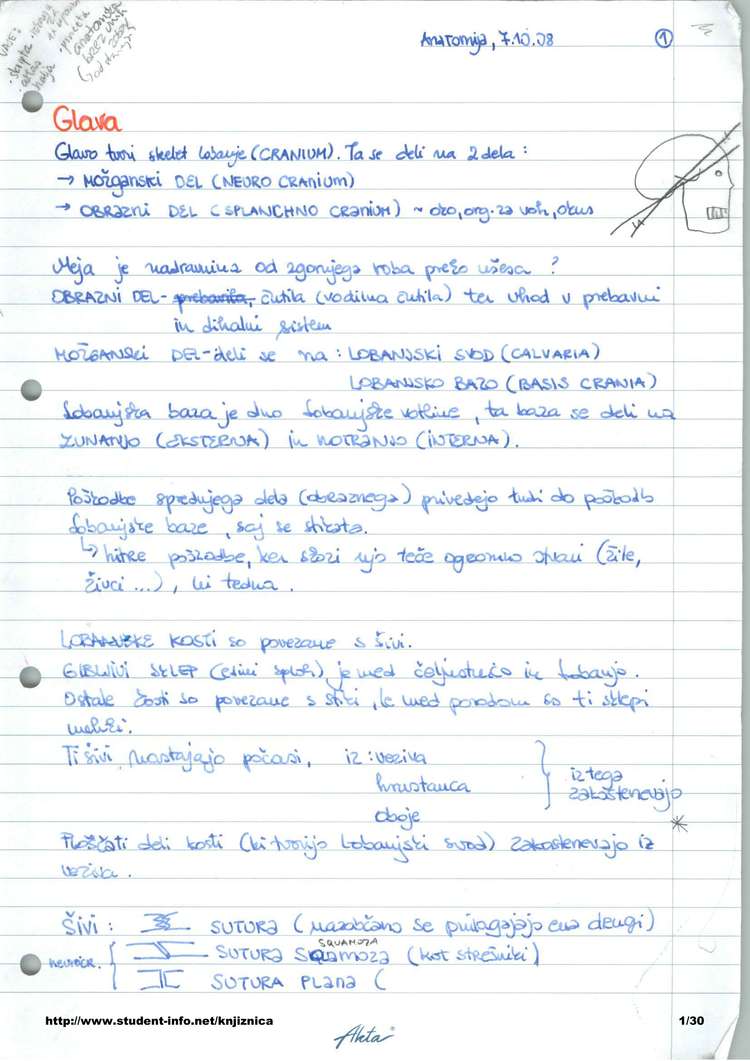 VAJE:
Anatomija, 7.10.08
1
Glava
Glavo tvori skelet lobanje (CRANIUM). Ta se deli na 2 dela :
→ MOŽGANSKI DEL (NEURO CRANIUM)
→ OBRAZNI DEL (SPLANCHNO CRANIUM) ~ oko, org. za voh, okus
Meja je nadravnina od zgornjega roba preko ušesa ?
OBRAZNI DEL - prebavila, čutila (vodilna čutila) ter vhod v prebavni
in dihalni sistem
MOŽGANSKI DEL - deli se na : LOBANJSKI SVOD (CALVARIA)
LOBANJSKO BAZO (BASIS CRANIA)
Lobanjska baza je dno lobanjske votline, ta baza se deli na
ZUNANJO (EKSTERNA) in NOTRANJO (INTERNA).
Poškodbe sprednjega dela (obraznega) privedejo tudi do poškodb
lobanjske baze, saj se stikata.
↳ hitre poškodbe, ker skozi njo teče ogromno stvari (žile,
živci ...), ki tedna.
LOBANJSKE KOSTI so povezane s šivi.
GIBLJIVI SKLEP (edini sploh) je med čeljustnico in lobanjo.
Ostale kosti so povezane s stiki, le med porodom so ti sklepi
mehki.
Ti šivi nastajajo počasi, iz : veziva
hrustanca
oboje
iz tega
zakostenevajo
*
Ploščati deli kosti (ki tvorijo lobanjski svod) zakostenevajo iz
veziva.
Šivi : SUTURA (nazobčano se prilagajajo ena drugi)
SQUAMOZA
neurocr. SUTURA SQAMOZA (kot strešniki)
SUTURA PLANA (
http://www.student-info.net/knjiznica
1/30
Ahta